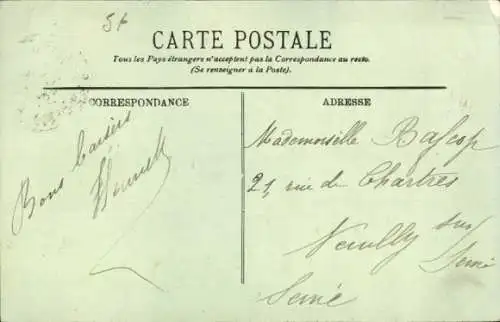 5t
CARTE POSTALE
Tous les Pays étrangers n'acceptent pas la Correspondance au recto.
(Se renseigner à la Poste).
CORRESPONDANCE
ADRESSE
Bons baisers
Mademoiselle Bascop
21, rue de Chartres
Neuilly sur
Seine
Seine